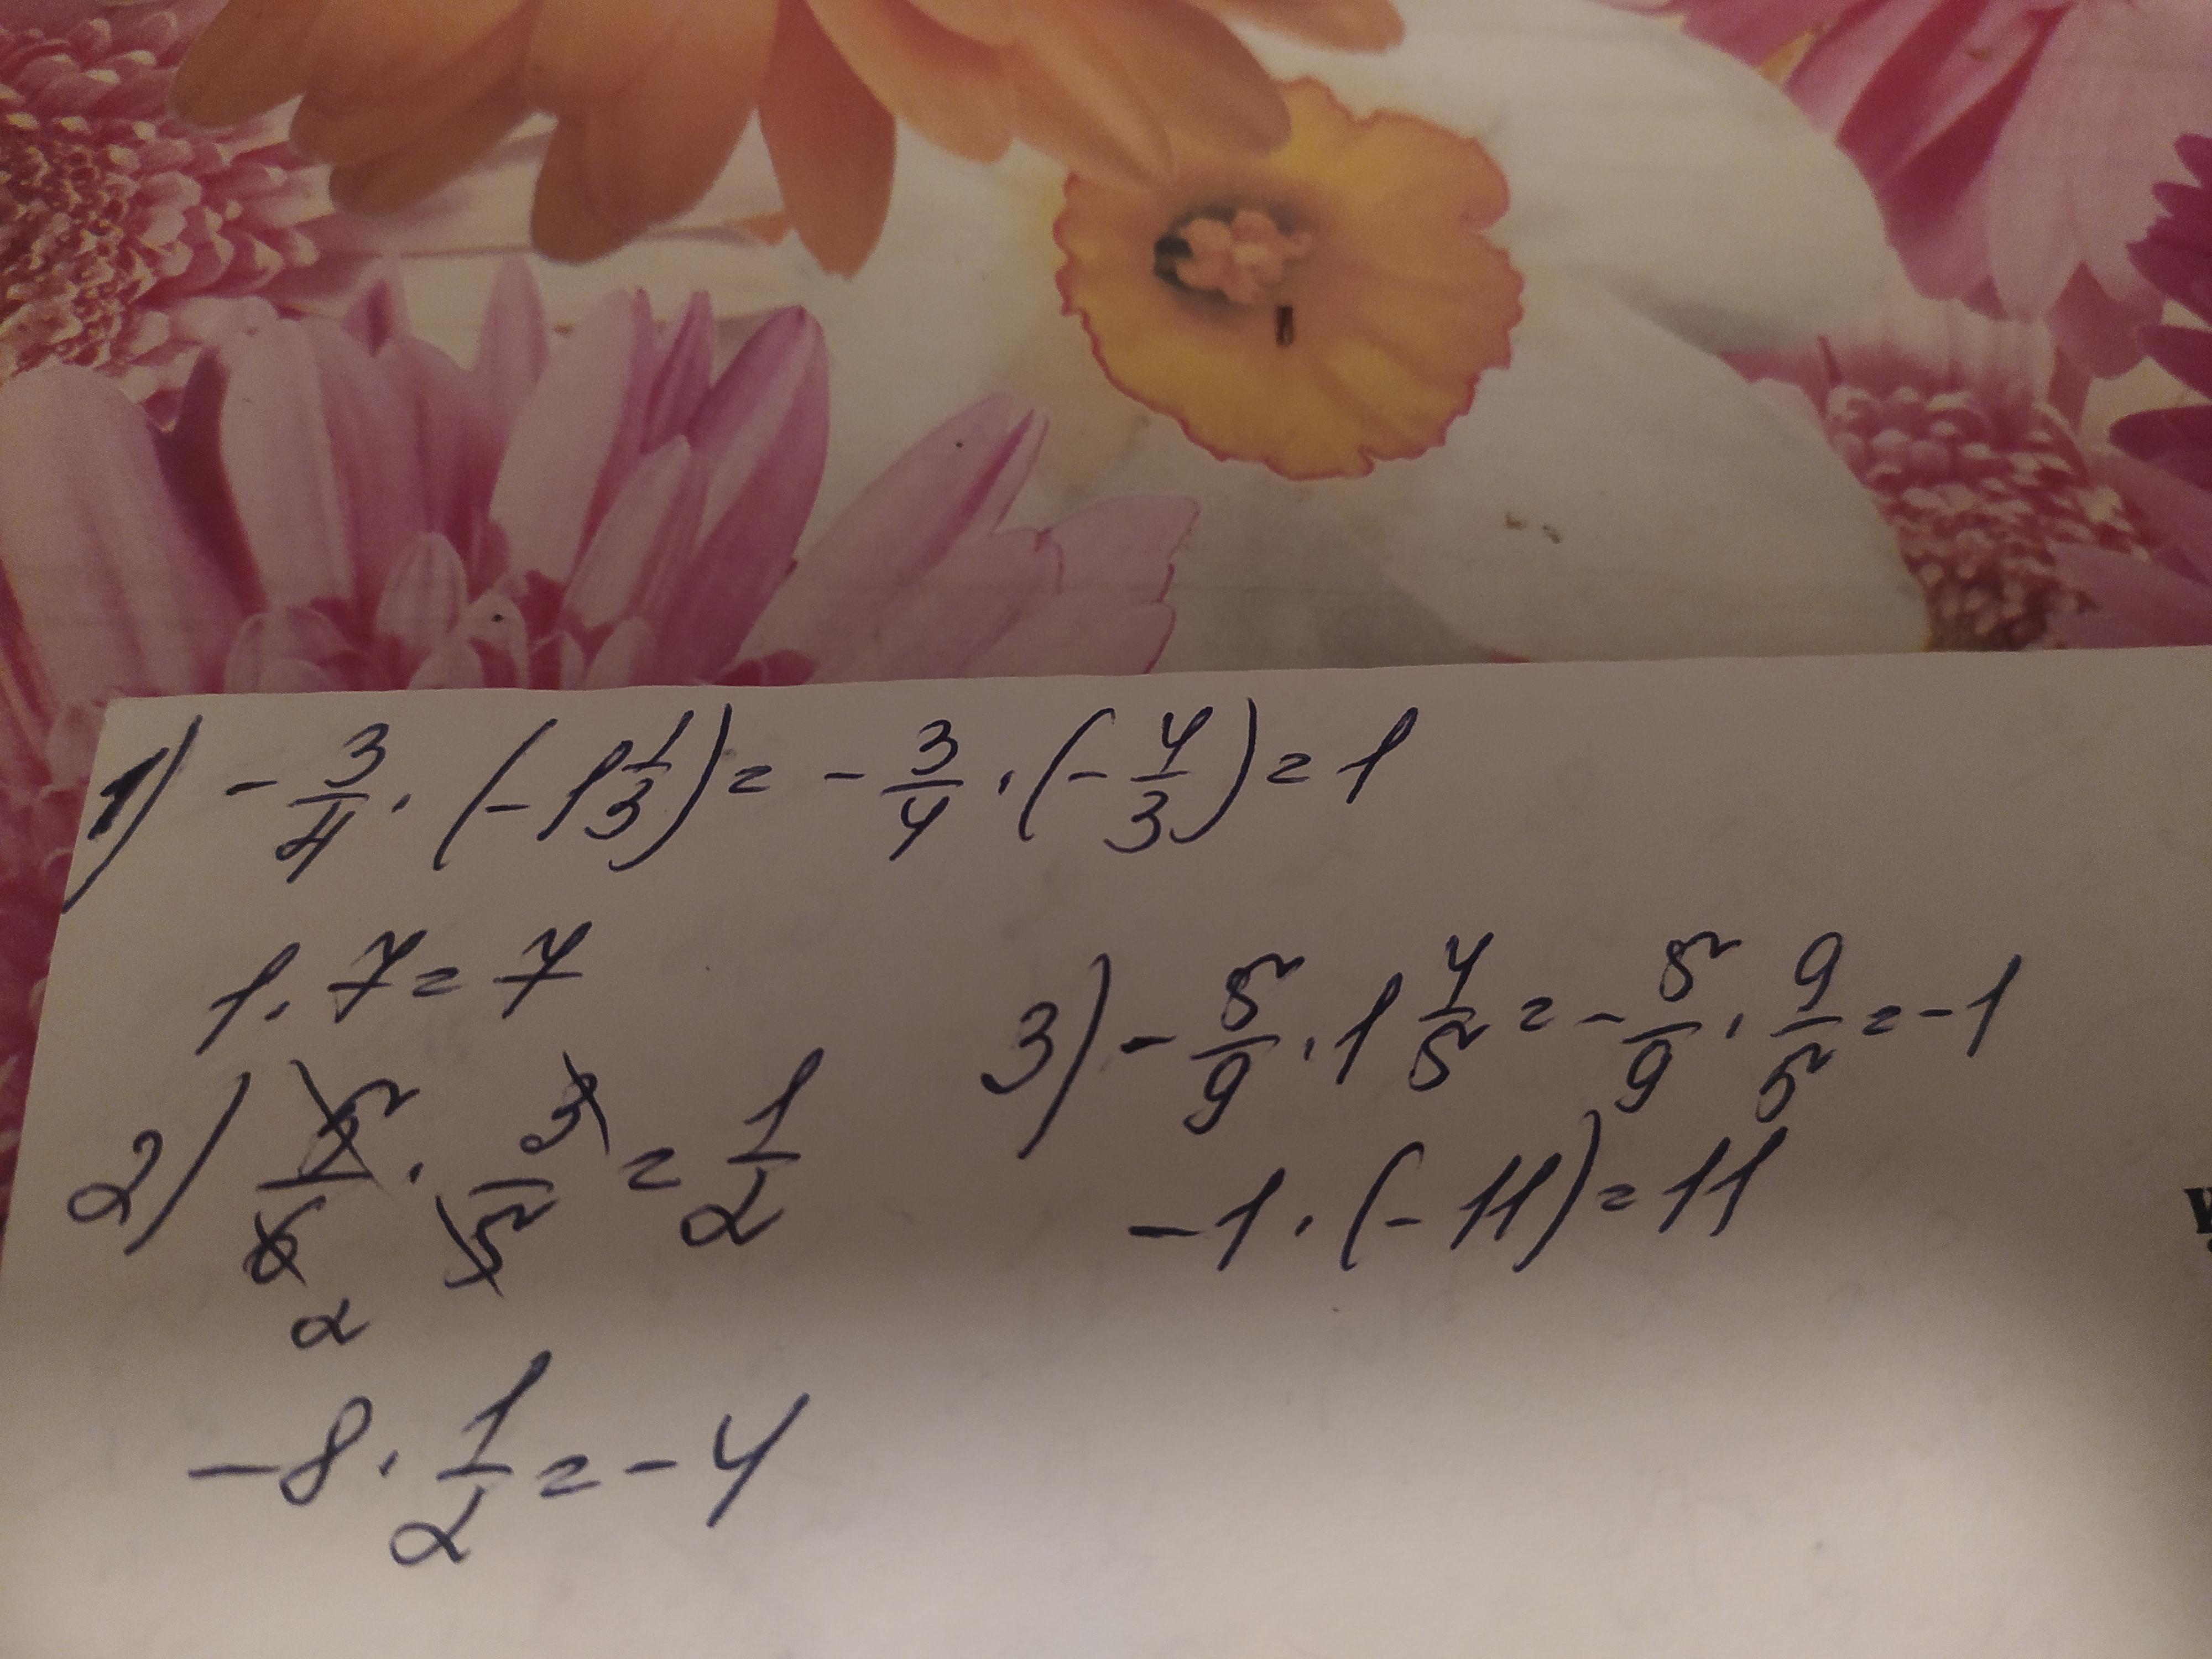 1) -3/4 · (-1 1/3) = -3/4 · (-4/3) = 1
1 · 7 = 7
2) 5/6 · 3/5 = 1/2
2
-8 · 1/2 = -4
3) -5/9 · 1 4/5 = -5/9 · 9/5 = -1
-1 · (-11) = 11